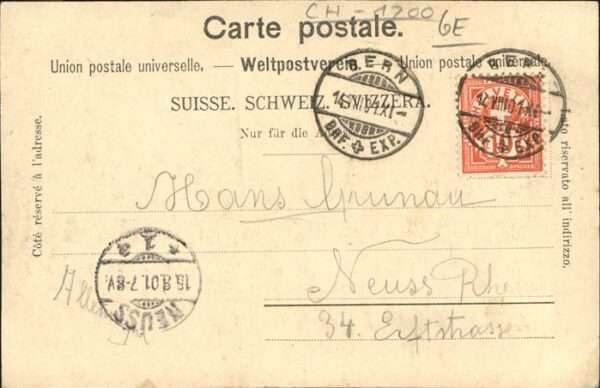 CH-1200
GE
Carte postale.
Union postale universelle. — Weltpostverein. — Union postale universale.
SUISSE. SCHWEIZ. SVIZZERA.
Nur für die
Côté réservé à l'adresse.
Lato riservato all' indirizzo.
BERN
BRF. EXP.
BERN
BRF. EXP.
HELVETIA
Hans Grunau
Neuss Rh
34. Erftstrasse
1
15.8.01.7-8V.
NEUSS